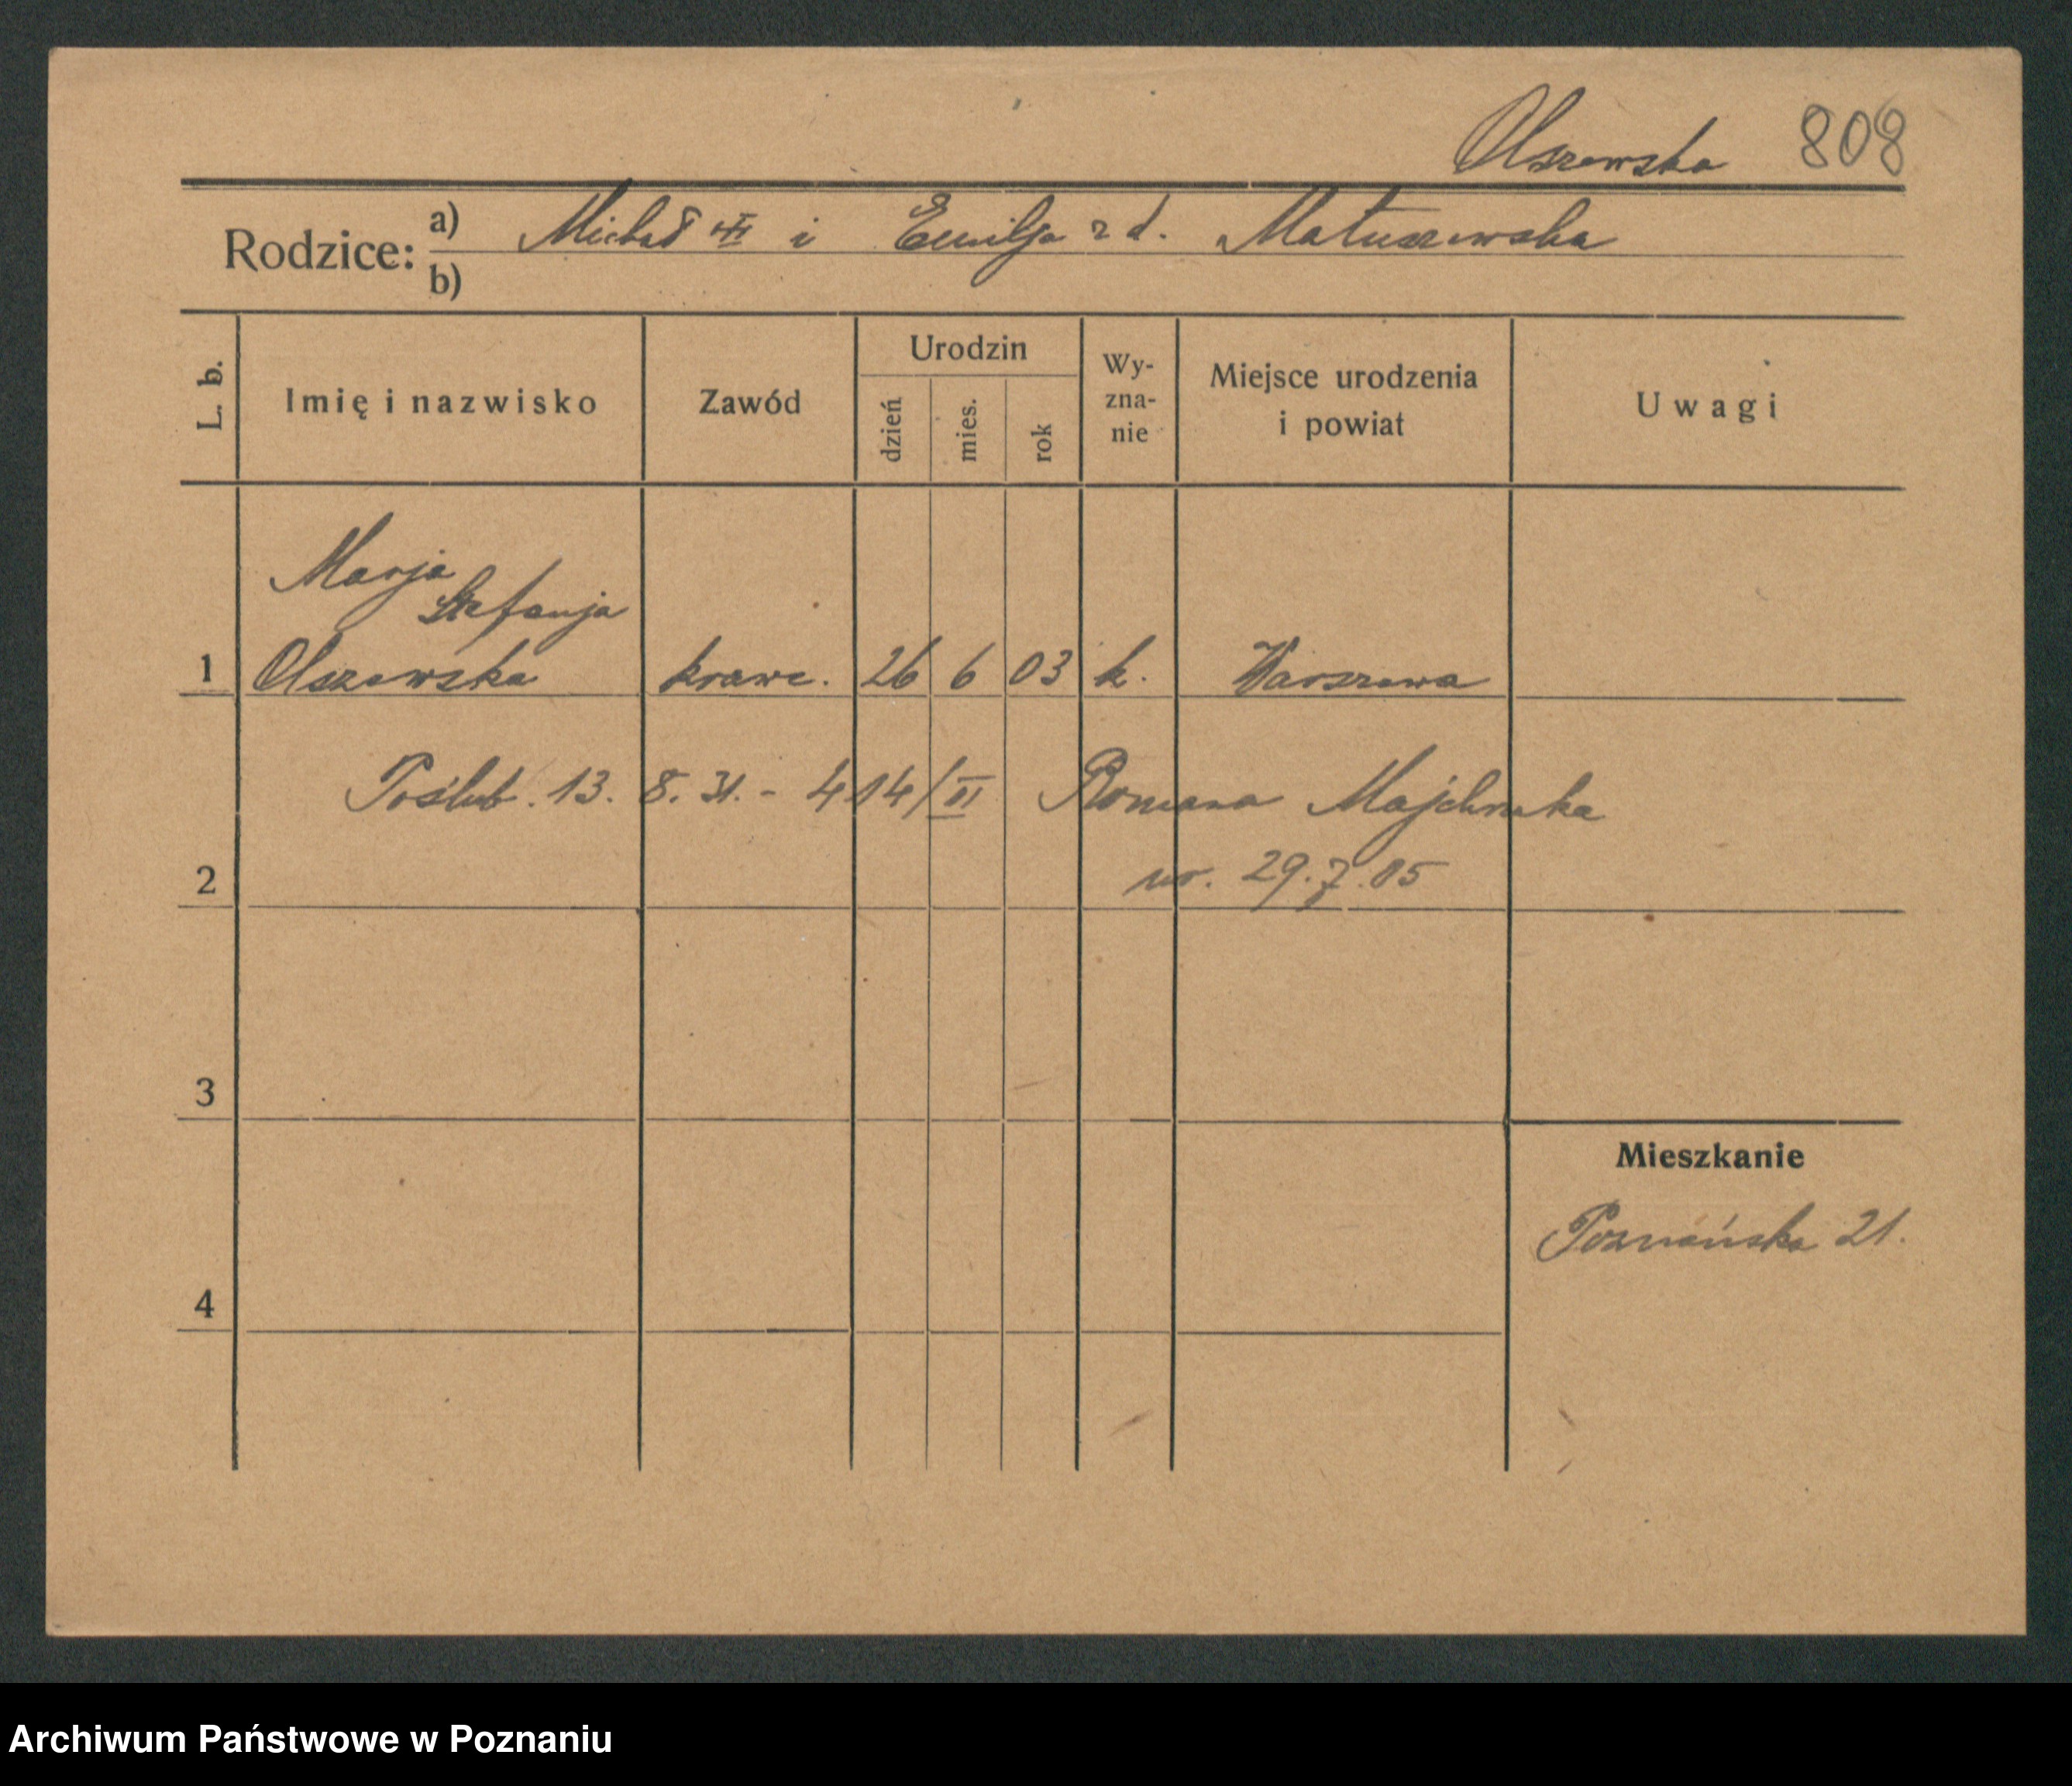 Olszewska 808
Rodzice: a) Michał i Emilja z d. Matuszewska
b)
L. b. Imię i nazwisko Zawód Urodzin dzień mies. rok Wy-zna-nie Miejsce urodzenia i powiat Uwagi
Marja
Stefanja
1 Olszewska krawc. 26 6 03 k. Warszawa
Poślub. 13. 8. 31. - 414/III Romana Majchrzaka
2 ur. 29.7.05
3
Mieszkanie
Poznańska 21.
4
Archiwum Państwowe w Poznaniu